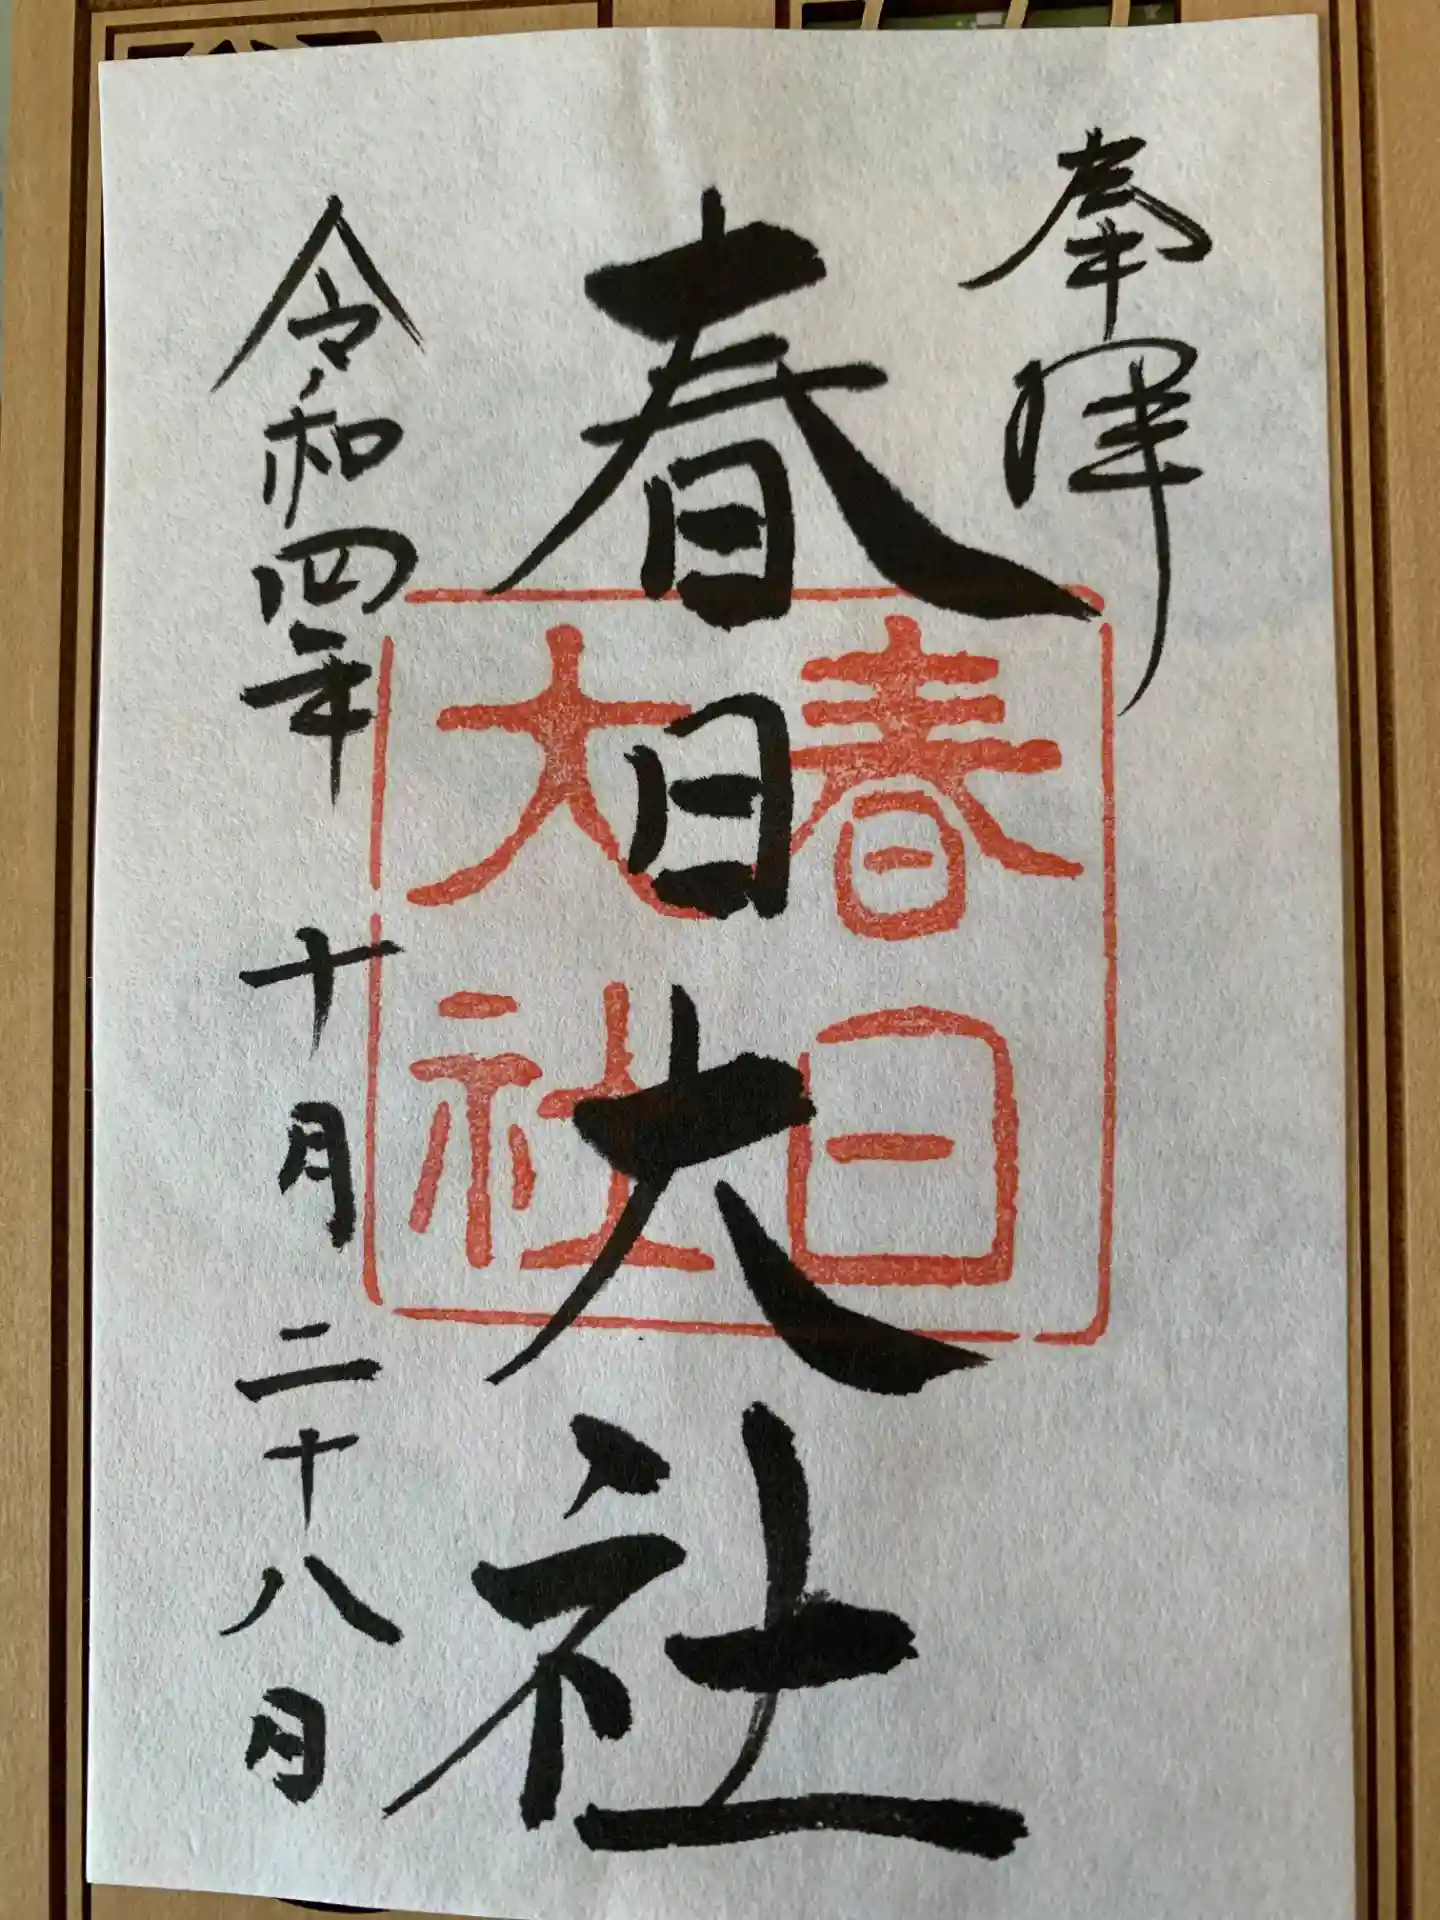 奉拝
春日大社
春日
大社
令和四年 十月 二十八日